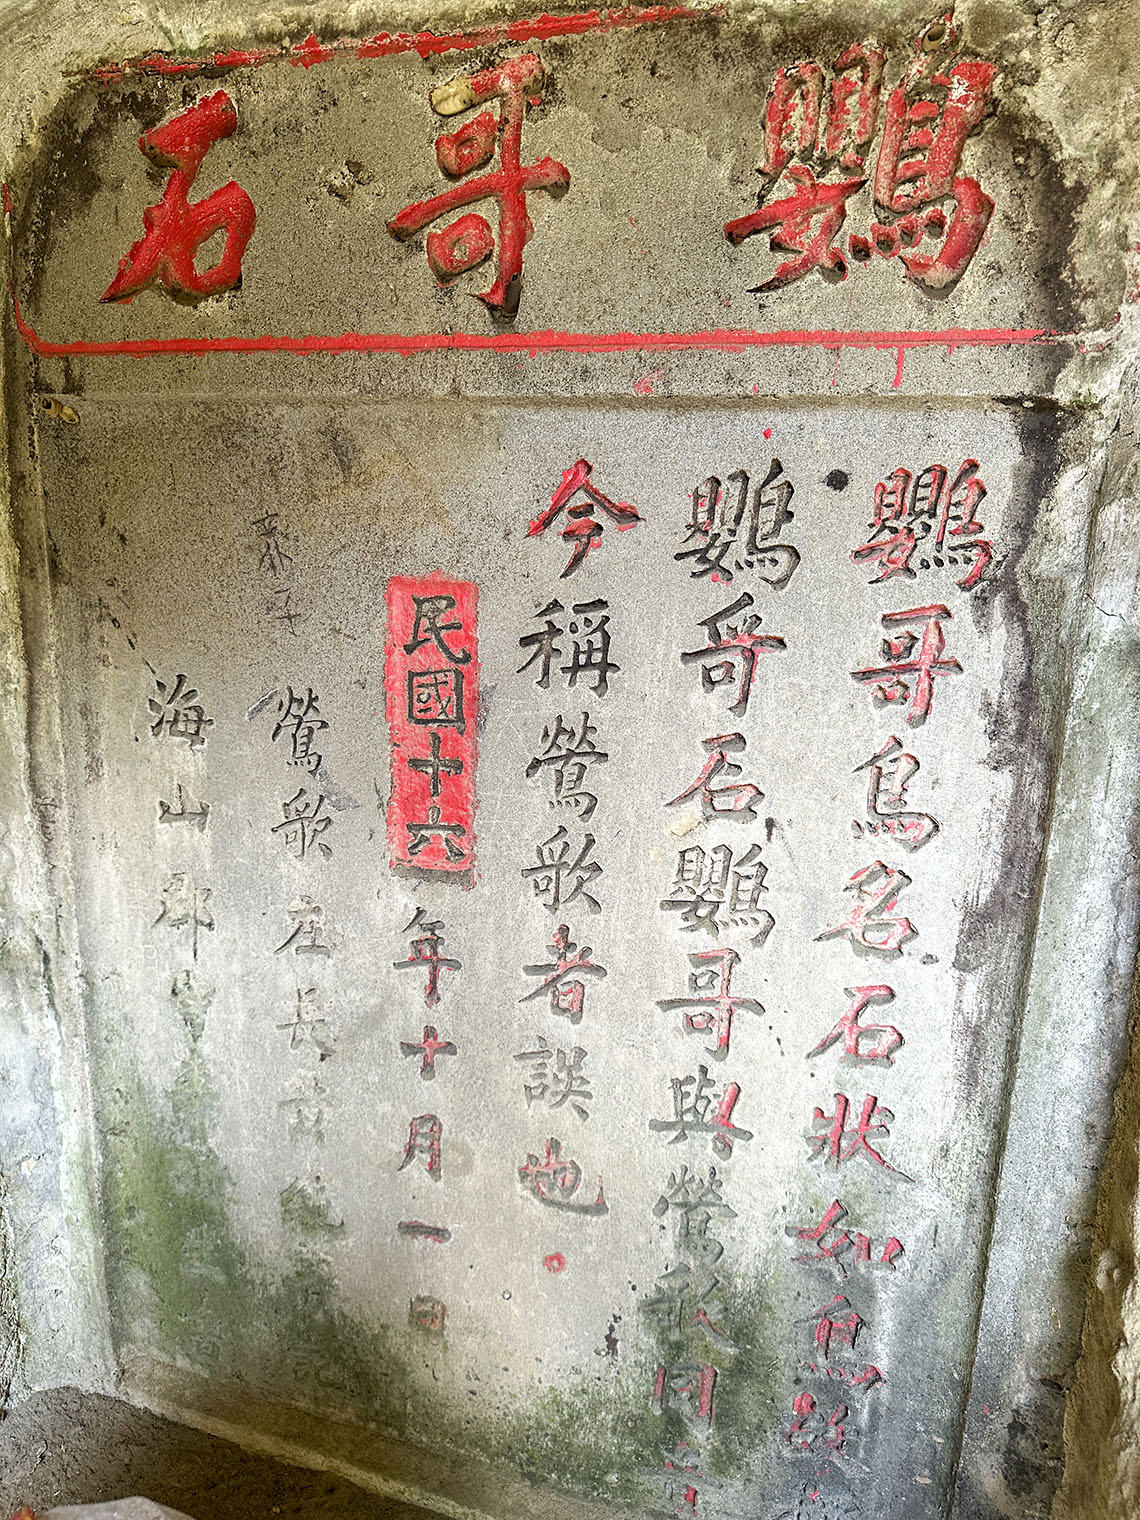 鸚哥石
鸚哥鳥名石狀如鳥故
鸚哥石鸚哥與鶯歌同音
今稱鶯歌者誤也
民國十六年十月一日
鶯歌庄長黃
海山郡